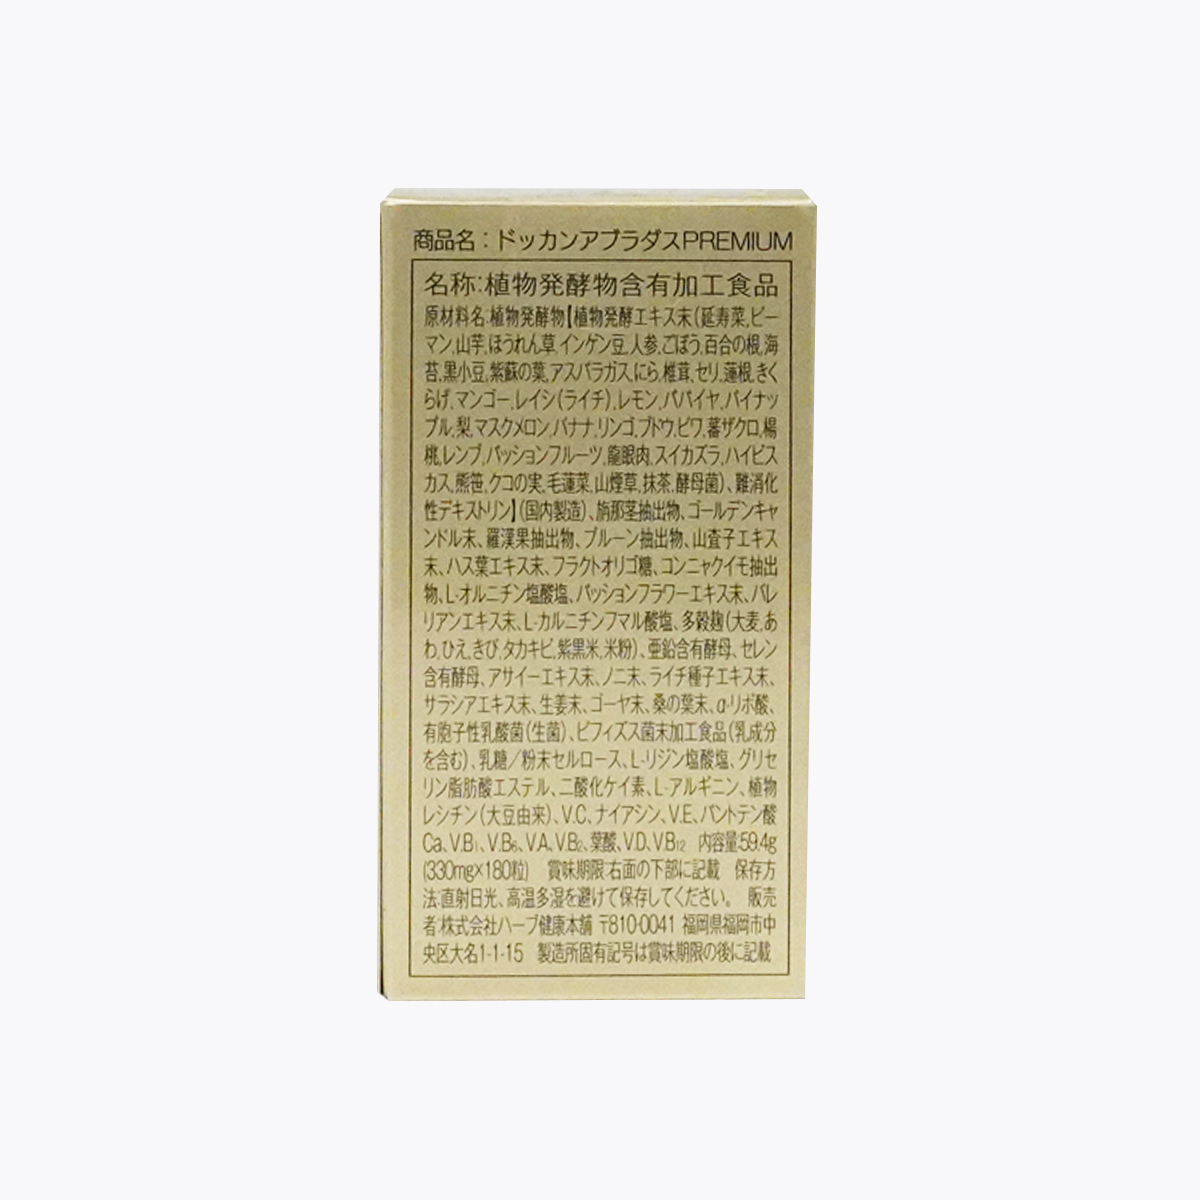 商品名：ドッカンアブラダスPREMIUM
名称:植物発酵物含有加工食品
原材料名:植物発酵物【植物発酵エキス末(延寿菜,ピー
マン,山芋,ほうれん草,インゲン豆,人参,ごぼう,百合の根,海
苔,黒小豆,紫蘇の葉,アスパラガス,にら,椎茸,セリ,蓮根,きく
らげ,マンゴー,レイシ(ライチ),レモン,パパイヤ,パイナッ
プル,梨,マスクメロン,バナナ,リンゴ,ブドウ,ビワ,蕃ザクロ,楊
桃,レンブ,パッションフルーツ,龍眼肉,スイカズラ,ハイビス
カス,熊笹,クコの実,毛蓮菜,山煙草,抹茶,酵母菌)、難消化
性デキストリン】(国内製造)、旃那茎抽出物、ゴールデンキャ
ンドル末、羅漢果抽出物、プルーン抽出物、山査子エキス
末、ハス葉エキス末、フラクトオリゴ糖、コンニャクイモ抽出
物、L-オルニチン塩酸塩、パッションフラワーエキス末、バレ
リアンエキス末、L-カルニチンフマル酸塩、多穀麹(大麦,あ
わ,ひえ,きび,タカキビ,紫黒米,米粉)、亜鉛含有酵母、セレン
含有酵母、アサイーエキス末、ノニ末、ライチ種子エキス末、
サラシアエキス末、生姜末、ゴーヤ末、桑の葉末、α-リポ酸、
有胞子性乳酸菌(生菌)、ビフィズス菌末加工食品(乳成分
を含む)、乳糖／粉末セルロース、L-リジン塩酸塩、グリセ
リン脂肪酸エステル、二酸化ケイ素、L-アルギニン、植物
レシチン(大豆由来)、V.C、ナイアシン、V.E、パントテン酸
Ca、V.B₁、V.B₆、V.A、V.B₂、葉酸、V.D、V.B₁₂　内容量:59.4g
(330mg×180粒)　賞味期限:右面の下部に記載　保存方
法:直射日光、高温多湿を避けて保存してください。　販売
者:株式会社ハーブ健康本舗 〒810-0041 福岡県福岡市中
央区大名1-1-15　製造所固有記号は賞味期限の後に記載